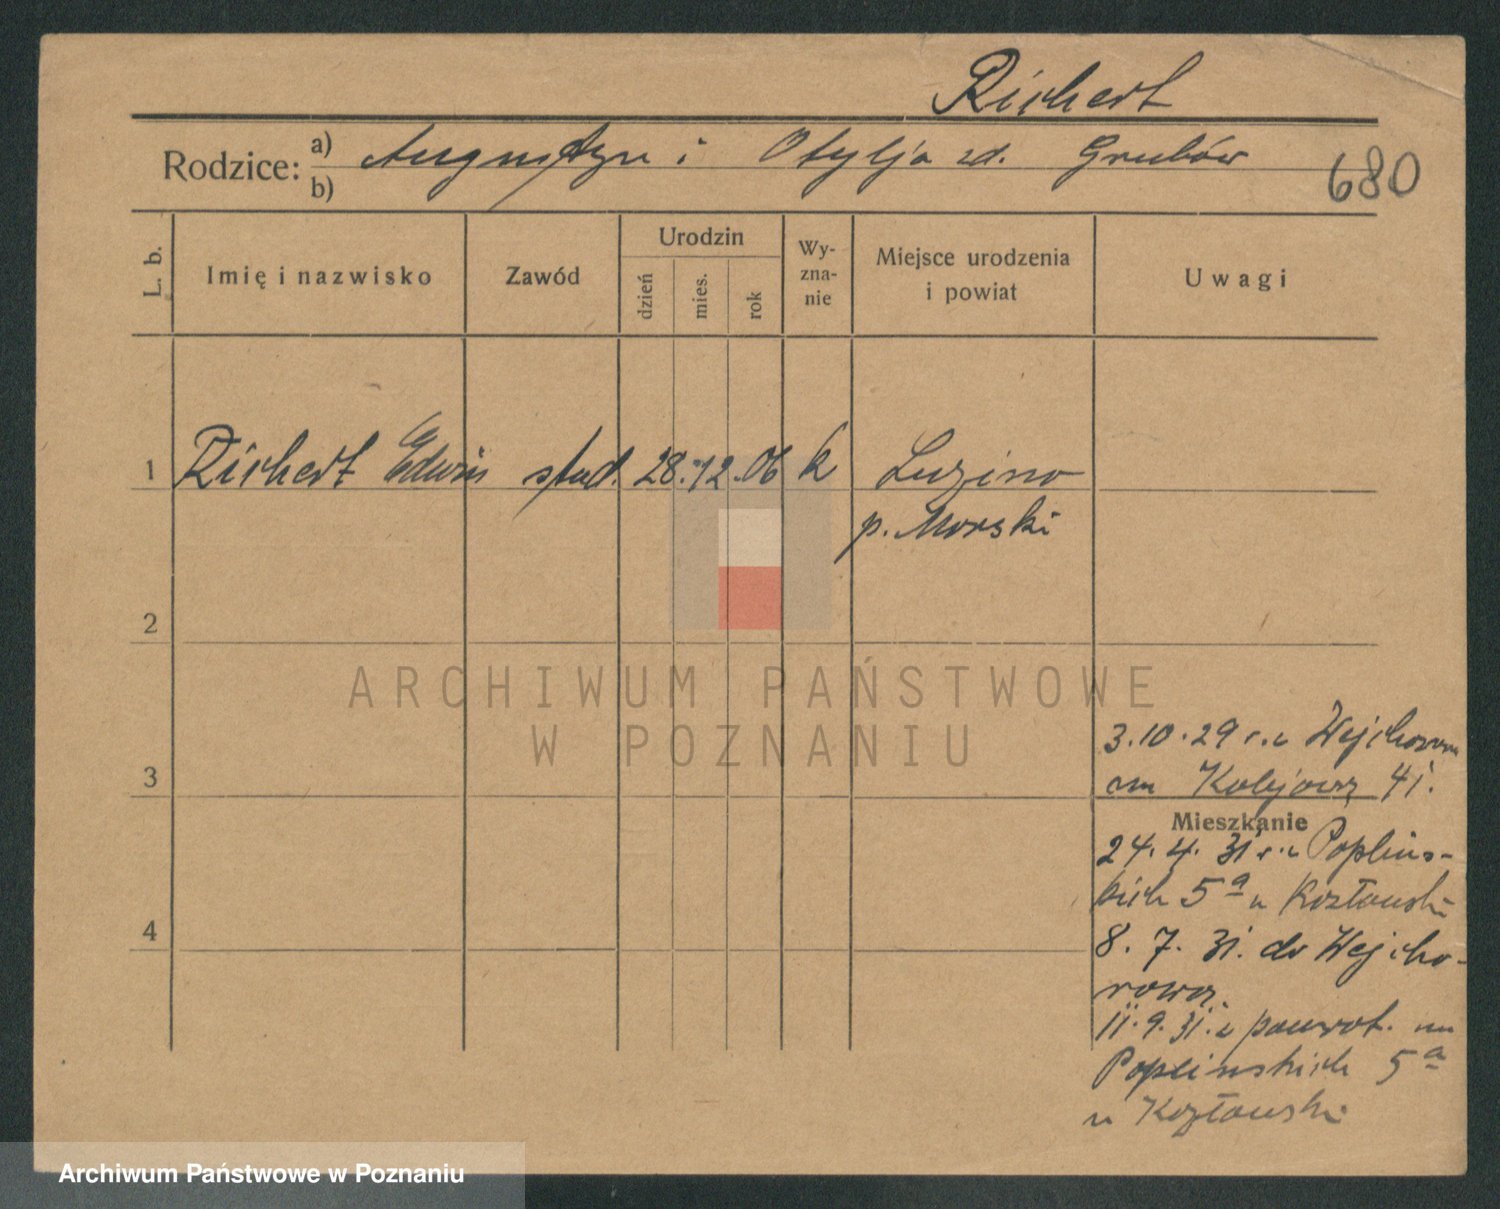 Richert
Rodzice: a) Augustyn i Otylja zd. Grubów
b)
680
L. b.
Imię i nazwisko
Zawód
Urodzin
dzień
mies.
rok
Wy-
zna-
nie
Miejsce urodzenia
i powiat
Uwagi
1 Richert Edwin stud. 28. 12. 06 k Luzino
p. Morski
2
ARCHIWUM PAŃSTWOWE
W POZNANIU
3
3.10.29 r. z Wejherowa
na Kolejową 41.
Mieszkanie
24. 4. 31 r. z Poplińs-
kich 5a u Kozłowski
4
8. 7. 31. do Wejhe-
rowa.
11. 9. 31. z powrot. na
Poplinskich 5a
u Kozłowski
Archiwum Państwowe w Poznaniu